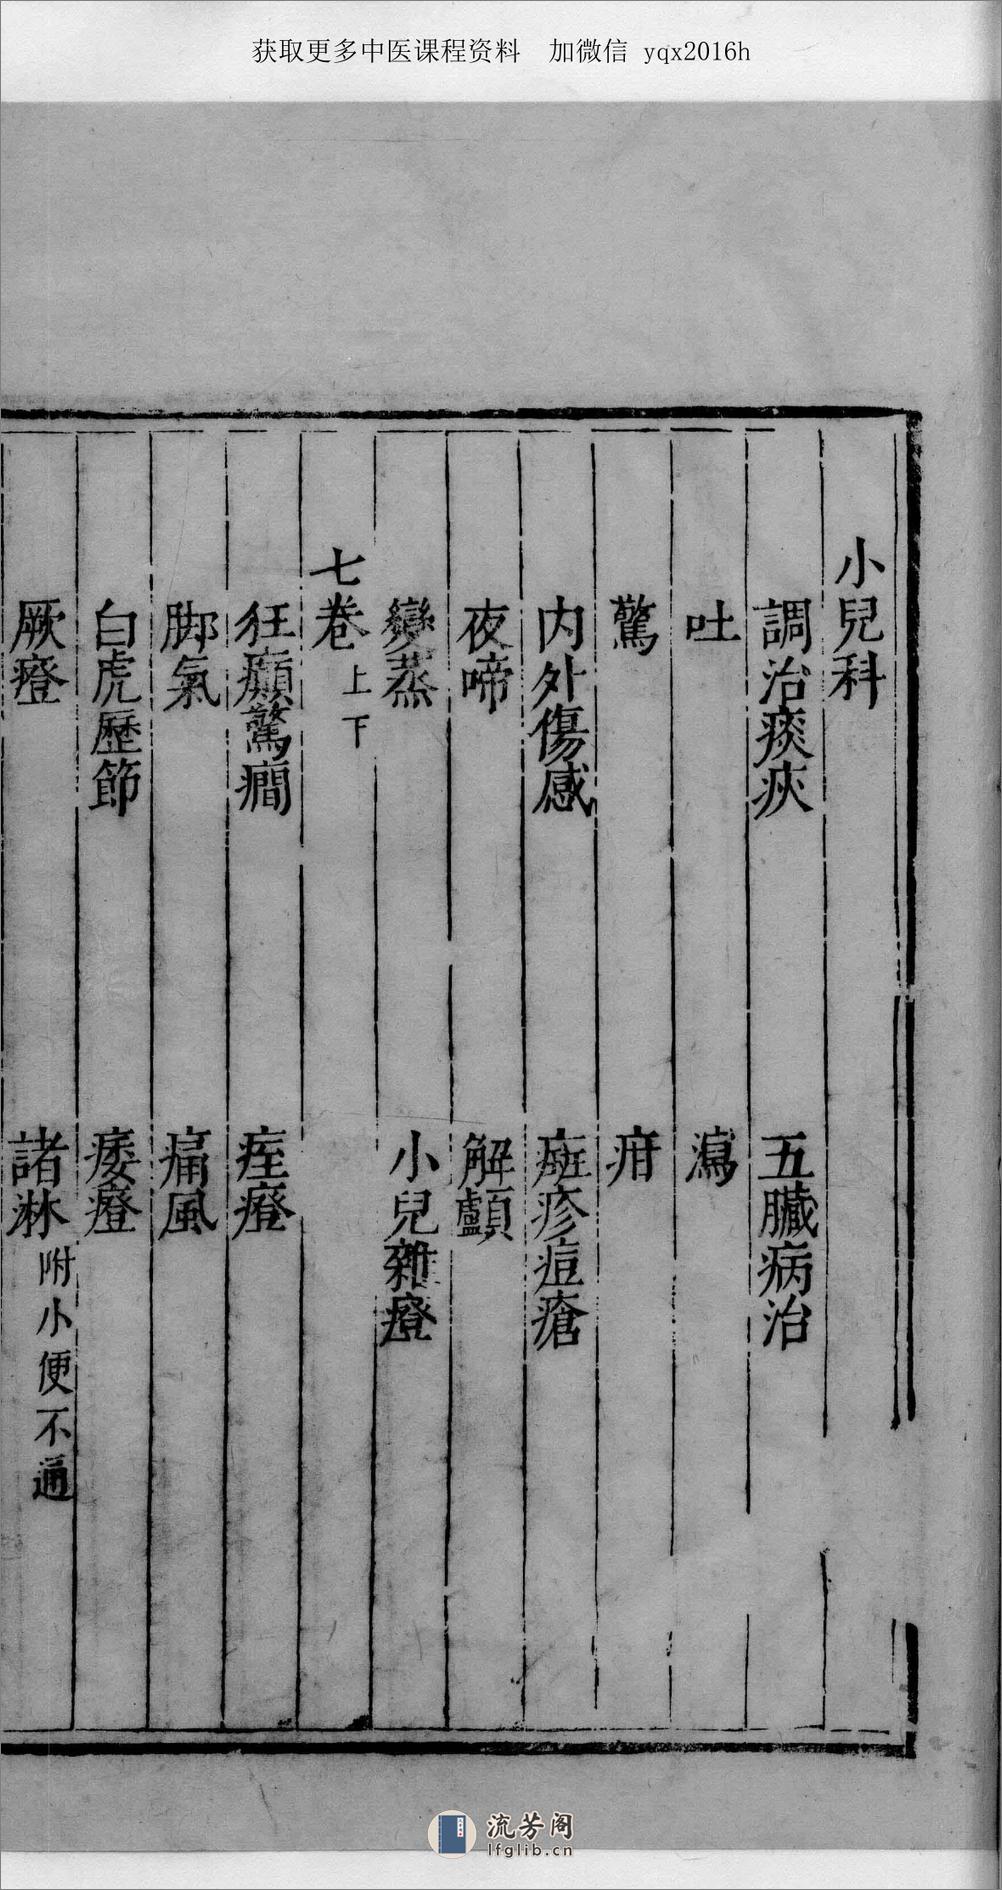 获取更多中医课程资料　加微信 yqx2016h
小兒科
調治痰疢　五臟病治
吐　瀉
驚　疳
内外傷感　痘疹痘瘡
夜啼　解顱
變蒸　小兒雜證
七卷上下
狂癲驚癇　痓證
脚氣　痛風
白虎歷節　痿證
厥證　諸淋附小便不通
流芳阁
lfglib.cn